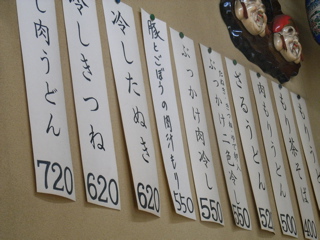 もりうどん 400
もり茶そば 500
肉もりうどん 52
ざるうどん 550
二色冷 550
ぶっかけ肉冷し 550
豚とごぼうの肉汁もり 550
冷したぬき 620
冷しきつね 620
し肉うどん 720